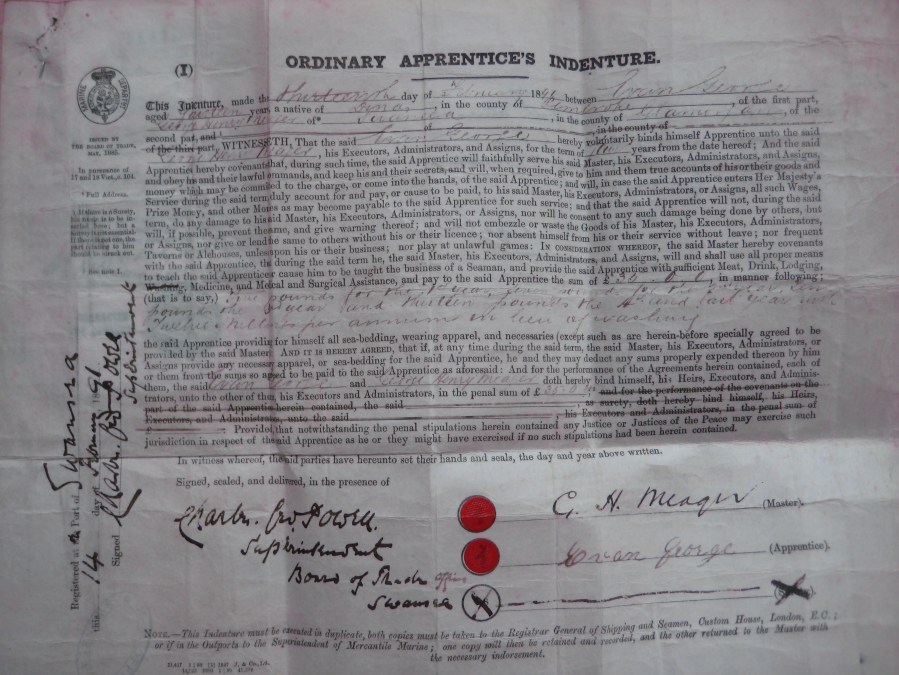 ORDINARY APPRENTICE'S INDENTURE.
(I)
MARINE DEPARTMENT
ISSUED BY
THE BOARD OF TRADE,
In pursuance of
17 and 18 Vict., c. 104.
* Full Address.
† See note 1.
This Indenture, made the Thirteenth day of 1891 between Evan George
aged years, a native of Dinas, in the county of Pembroke, of the first part,
George Henry Meager of* Swansea, in the county of Glamorgan, of the
second part, and † of in the county of
of the third part, WITNESSETH, That the said Evan George hereby voluntarily binds himself Apprentice unto the said
George Henry Meager, his Executors, Administrators, and Assigns, for the term of years from the date hereof; And the said
Apprentice hereby covenants that, during such time, the said Apprentice will faithfully serve his said Master, his Executors, Administrators, and Assigns,
and obey his and their lawful commands, and keep his and their secrets, and will, when required, give to him and them true accounts of his or their goods and
money which may be committed to the charge, or come into the hands, of the said Apprentice; and will, in case the said Apprentice enters Her Majesty's
Service during the said term, duly account for and pay, or cause to be paid, to his said Master, his Executors, Administrators, or Assigns, all such Wages,
Prize Money, and other Monies as may become payable to the said Apprentice for such service; and that the said Apprentice will not, during the said
term, do any damage to his said Master, his Executors, Administrators, or Assigns, nor will he consent to any such damage being done by others, but
will, if possible, prevent the same, and give warning thereof; and will not embezzle or waste the Goods of his Master, his Executors, Administrators,
or Assigns, nor give or lend the same to others without his or their licence; nor absent himself from his or their service without leave; nor frequent
Taverns or Alehouses, unless upon his or their business; nor play at unlawful games: IN CONSIDERATION WHEREOF, the said Master hereby covenants
with the said Apprentice, that during the said term he, the said Master, his Executors, Administrators, and Assigns, will and shall use all proper means
to teach the said Apprentice or cause him to be taught the business of a Seaman, and provide the said Apprentice with sufficient Meat, Drink, Lodging,
Washing, Medicine, and Medical and Surgical Assistance, and pay to the said Apprentice the sum of £ , in manner following;
(that is to say,) pounds for the year pounds for the year
pounds the year and thirteen pounds the 4th and last year with
Twelve shillings per annum in lieu of washing
the said Apprentice providing for himself all sea-bedding, wearing apparel, and necessaries (except such as are herein-before specially agreed to be
provided by the said Master). AND IT IS HEREBY AGREED, that if, at any time during the said term, the said Master, his Executors, Administrators, or
Assigns provide any necessary apparel, or sea-bedding for the said Apprentice, he and they may deduct any sums properly expended thereon by him
or them from the sums so agreed to be paid to the said Apprentice as aforesaid: And for the performance of the Agreements herein contained, each of
them, the said Evan George and George Henry Meager doth hereby bind himself, his Heirs, Executors, and Admini-
strators, unto the other of them, his Executors and Administrators, in the penal sum of £ , and for the performance of the covenants on the
part of the said Apprentice herein contained, the said as surety, doth hereby bind himself, his Heirs,
Executors, and Administrators, unto the said , his Executors and Administrators, in the penal sum of
Provided, that notwithstanding the penal stipulations herein contained any Justice or Justices of the Peace may exercise such
jurisdiction in respect of the said Apprentice as he or they might have exercised if no such stipulations had been herein contained.
In witness whereof, the said parties have hereunto set their hands and seals, the day and year above written.
Signed, sealed, and delivered, in the presence of
Charles Geo Powell
Superintendent
Board of Trade Office
Swansea
G. H. Meager (Master).
Evan George (Apprentice).
Registered at the Port of Swansea
this 14 day of 1891
Signed Charles Geo Powell
Superintendent
NOTE.—This Indenture must be executed in duplicate, both copies must be taken to the Registrar General of Shipping and Seamen, Custom House, London, E.C.;
or if in the Outports to the Superintendent of Mercantile Marine; one copy will then be retained and recorded, and the other returned to the Master with
the necessary indorsement.